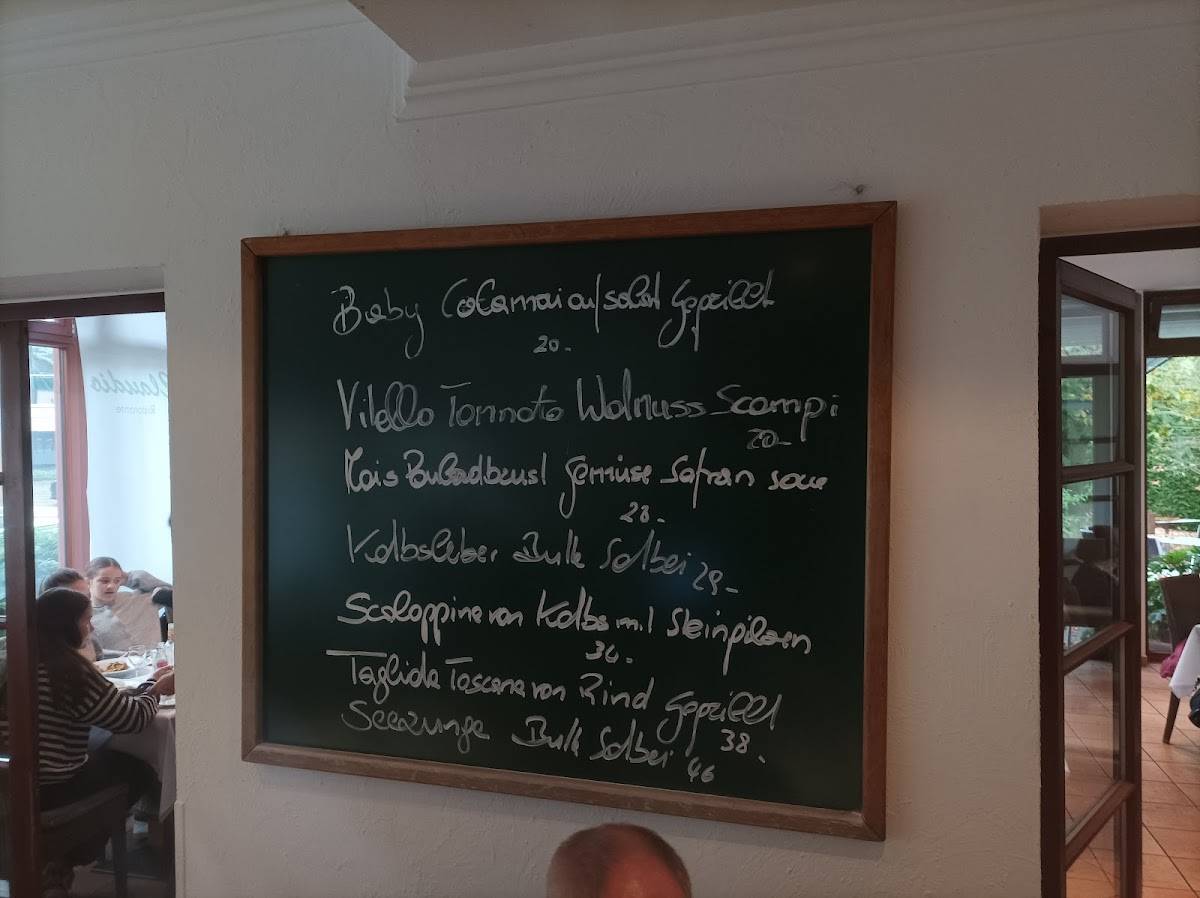 Claudio
Ristorante
Baby Calamari auf salat Gegrillt
20.-
Vitello Tonnato Walnuss Scampi
20.-
Mais Pouladbrust Gemüse Safran sauce
28.-
Kalbsleber Butter Salbei 29.-
Scaloppine von Kalb mit Steinpilzen
34.-
Tagliata Toscana von Rind Gegrillt
38.-
Seezunge Butter Salbei 46